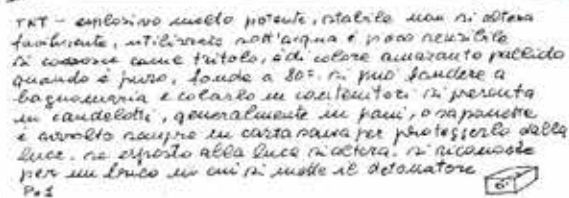 TNT - esplosivo molto potente, stabile non si altera
facilmente, utilizzato sott'acqua è poco sensibile
si conosce come tritolo, è di colore amaranto pallido
quando è puro, fonde a 80°. si può fondere a
bagnomaria e colarlo in contenitori si presenta
in candelotti, generalmente in pani, o saponette
è avvolto sempre in carta per proteggerlo dalla
luce. se esposto alla luce si altera. si riconosce
per un buco in cui si mette il detonatore
P.1